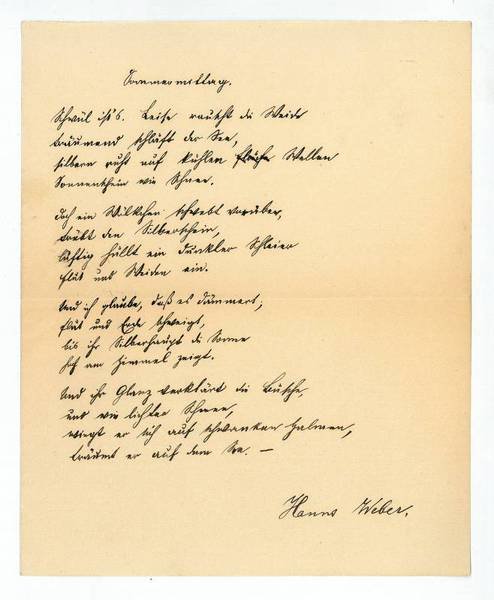 Sommermittag.
Schwül ist's. Leise rauscht die Weide
träumend schläft der See,
silbern ruht auf kühlen Wellen
Sonnenschein wie Schnee.
Doch ein Wölkchen schwebt vorüber,
trübt den Silberschein,
luftig hüllt ein dunkler Schleier
Flut und Weiden ein.
Und ich glaube, daß es dämmert;
Flut und Erde schweigt,
bis ihr Silberhaupt die Sonne
hoch am Himmel zeigt.
Und ihr Glanz verklärt die Büsche,
und wie lichter Schnee,
wiegt er sich auf schwanken Halmen,
träumt er auf dem See. —
Hanns Weber.